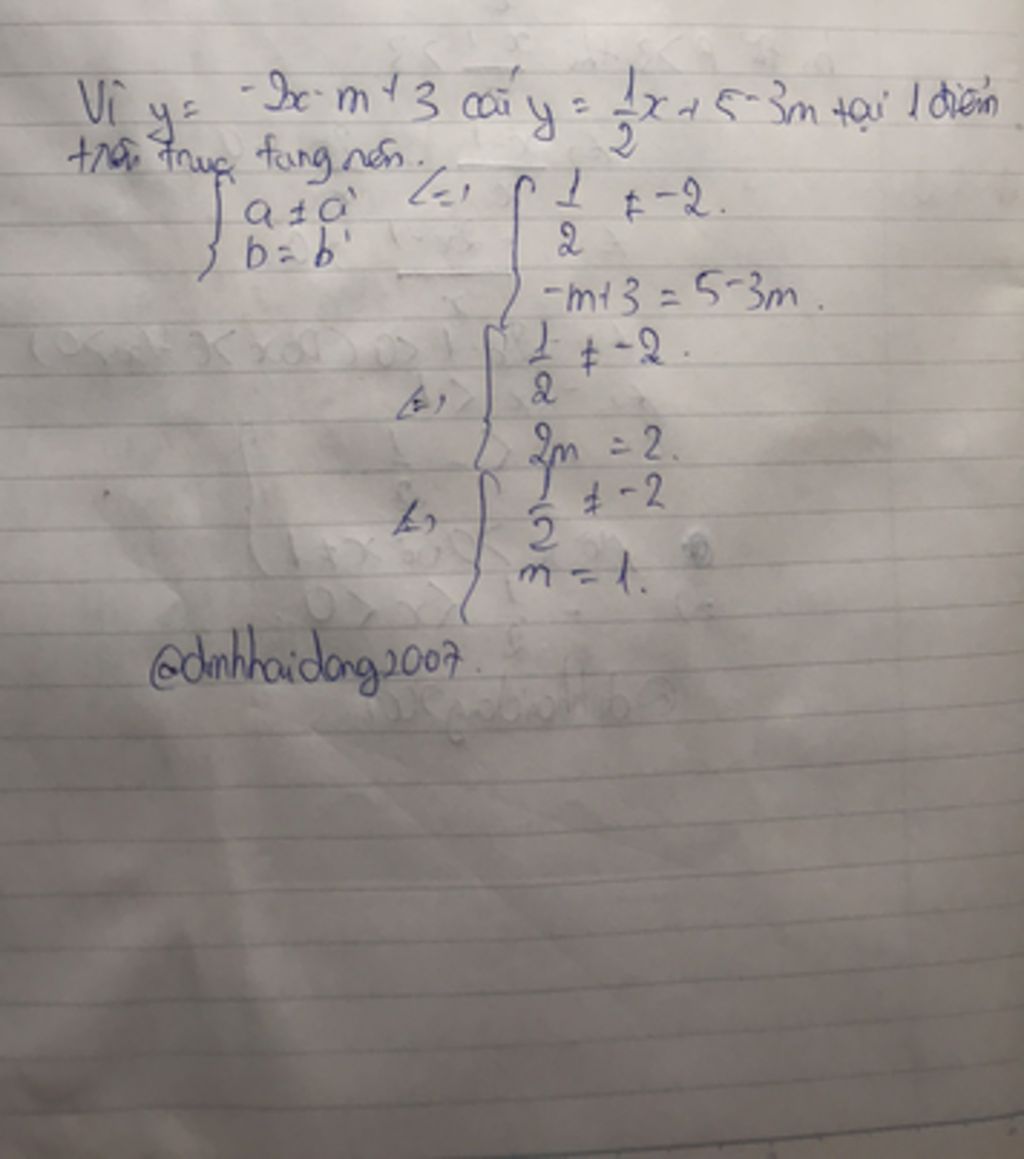 Vì y = -2x-m+3 cắt y = 1/2x+5-3m tại 1 điểm
trên trục tung nên.
{ a ≠ a' <=> { 1/2 ≠ -2.
b = b'
-m+3 = 5-3m.
<=> { 1/2 ≠ -2.
2m = 2.
<=> { 1/2 ≠ -2
m = 1.
@dinhhaidang2007.